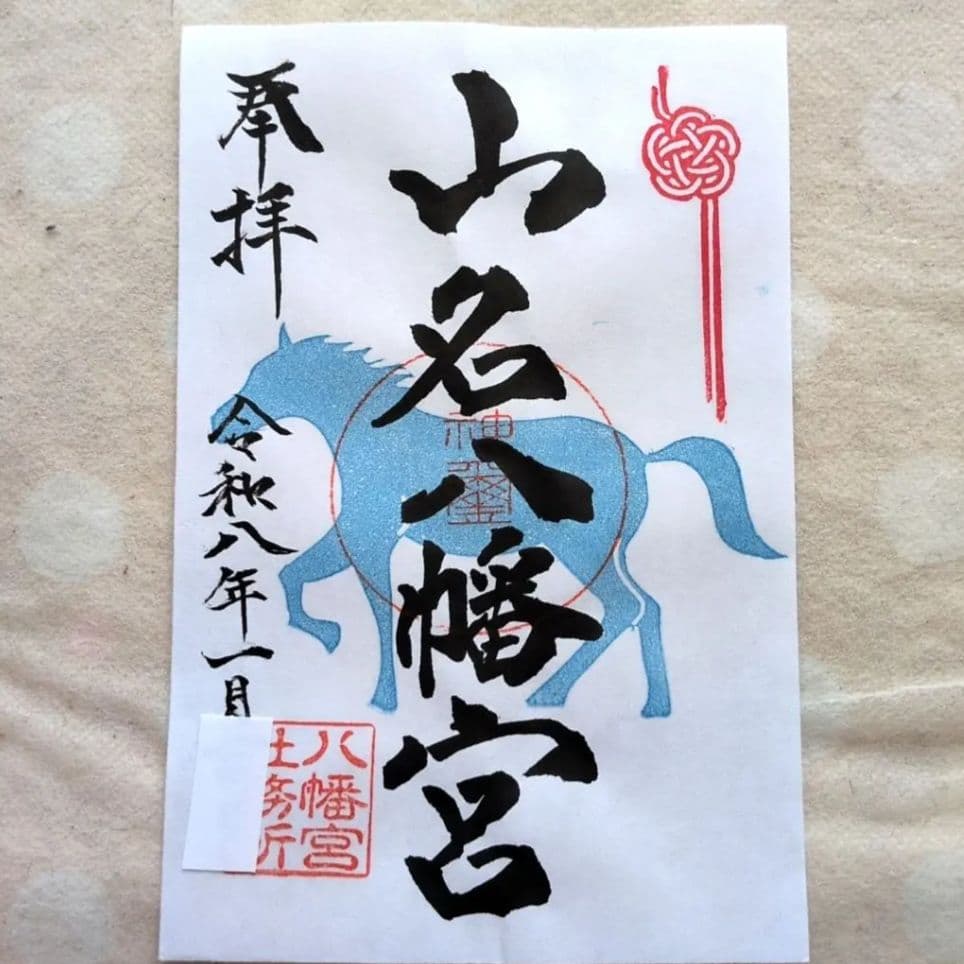 山名八幡宮
奉拝
令和八年一月
神璽
八幡宮
社務所